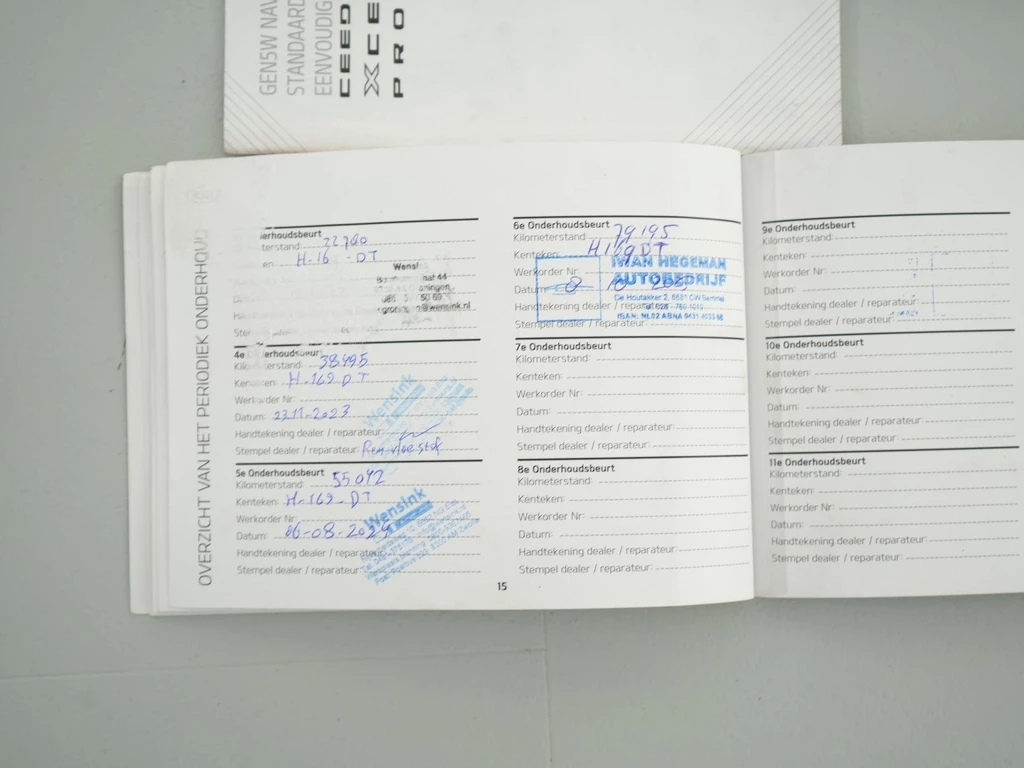 GEN5W NAV
STANDAARD
EENVOUDIG
CEED
XCE
PRO
OVERZICHT VAN HET PERIODIEK ONDERHOUD
erhoudsbeurt
terstand:
en: H-16 -DT
Wensi
at 44
ningen
50 69
@wensink.nl
4e erhoudsbeurt
Kilo erstand: 38495
Kenteken: H-169-DT
Werkorder Nr:
Datum: 23-11-2023
Handtekening dealer / reparateur:
Stempel dealer / reparateur: Remvloeistof
Wensink
5e Onderhoudsbeurt
Kilometerstand: 55042
Kenteken: H-169-DT
Werkorder Nr:
Datum: 06-08-2024
Handtekening dealer / reparateur:
Stempel dealer / reparateur:
Wensink
15
6e Onderhoudsbeurt
Kilometerstand: 79195
Kenteken: H169DT
Werkorder Nr:
Datum:
Handtekening dealer / reparateur:
Stempel dealer / reparateur:
IVAN HEGEMAN
AUTOBEDRIJF
De Houtakker 2, 6681 CW Bemmel
7e Onderhoudsbeurt
Kilometerstand:
Kenteken:
Werkorder Nr:
Datum:
Handtekening dealer / reparateur:
Stempel dealer / reparateur:
8e Onderhoudsbeurt
Kilometerstand:
Kenteken:
Werkorder Nr:
Datum:
Handtekening dealer / reparateur:
Stempel dealer / reparateur:
9e Onderhoudsbeurt
Kilometerstand:
Kenteken:
Werkorder Nr:
Datum:
Handtekening dealer / reparateur:
Stempel dealer / reparateur:
10e Onderhoudsbeurt
Kilometerstand:
Kenteken:
Werkorder Nr:
Datum:
Handtekening dealer / reparateur:
Stempel dealer / reparateur:
11e Onderhoudsbeurt
Kilometerstand:
Kenteken:
Werkorder Nr:
Datum:
Handtekening dealer / reparateur:
Stempel dealer / reparateur: